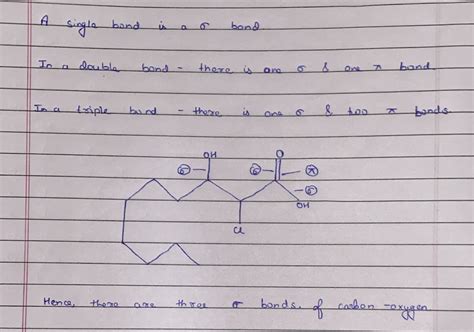 A single bond is a σ bond
In a double bond - there is one σ & one π bond
In a triple bond - there is one σ & two π bonds
OH O
σ σ π
σ
OH
Cl
Hence, there are three σ bonds of carbon-oxygen